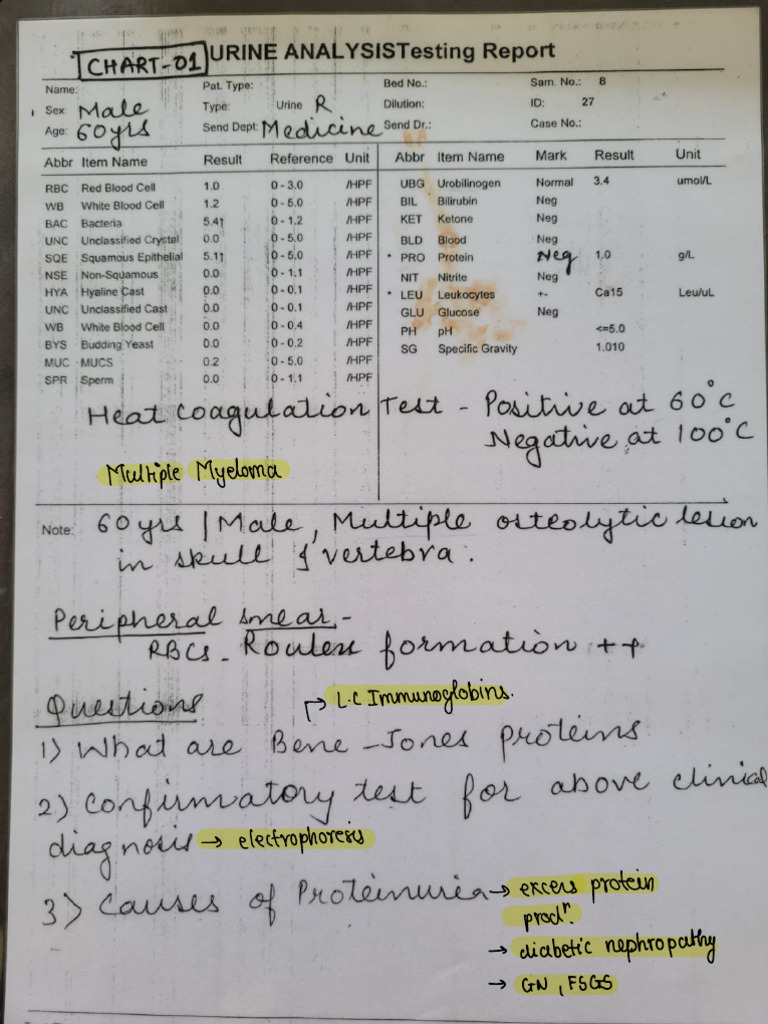 CHART-01 URINE ANALYSISTesting Report
Name: Pat. Type: Bed No.: Sam. No.: 8
Sex: Male Type: Urine R Dilution: ID: 27
Age: 60yrs Send Dept: Medicine Send Dr.: Case No.:
Abbr Item Name Result Reference Unit Abbr Item Name Mark Result Unit
RBC Red Blood Cell 1.0 0 - 3.0 /HPF UBG Urobilinogen Normal 3.4 umol/L
WB White Blood Cell 1.2 0 - 5.0 /HPF BIL Bilirubin Neg
BAC Bacteria 5.4↑ 0 - 1.2 /HPF KET Ketone Neg
UNC Unclassified Crystal 0.0 0 - 5.0 /HPF BLD Blood Neg
SQE Squamous Epithelial 5.1↑ 0 - 5.0 /HPF * PRO Protein Neg 1.0 g/L
NSE Non-Squamous 0.0 0 - 1.1 /HPF NIT Nitrite Neg
HYA Hyaline Cast 0.0 0 - 0.1 /HPF * LEU Leukocytes +- Ca15 Leu/uL
UNC Unclassified Cast 0.0 0 - 0.1 /HPF GLU Glucose Neg
WB White Blood Cell 0.0 0 - 0.4 /HPF PH pH <=5.0
BYS Budding Yeast 0.0 0 - 0.2 /HPF SG Specific Gravity 1.010
MUC MUCS 0.2 0 - 5.0 /HPF
SPR Sperm 0.0 0 - 1.1 /HPF
Heat Coagulation Test - Positive at 60°C
Negative at 100°C
Multiple Myeloma
Note: 60 yrs | Male, Multiple osteolytic lesion
in skull & vertebra.
Peripheral smear -
RBCs - Roulex formation ++
Questions
→ L.C Immunoglobins.
1) What are Bene - Jones proteins
2) Confirmatory test for above clinical
diagnosis → electrophoresis
3) Causes of Proteinuria → excess protein
prodⁿ.
→ diabetic nephropathy
→ GN, FSGS